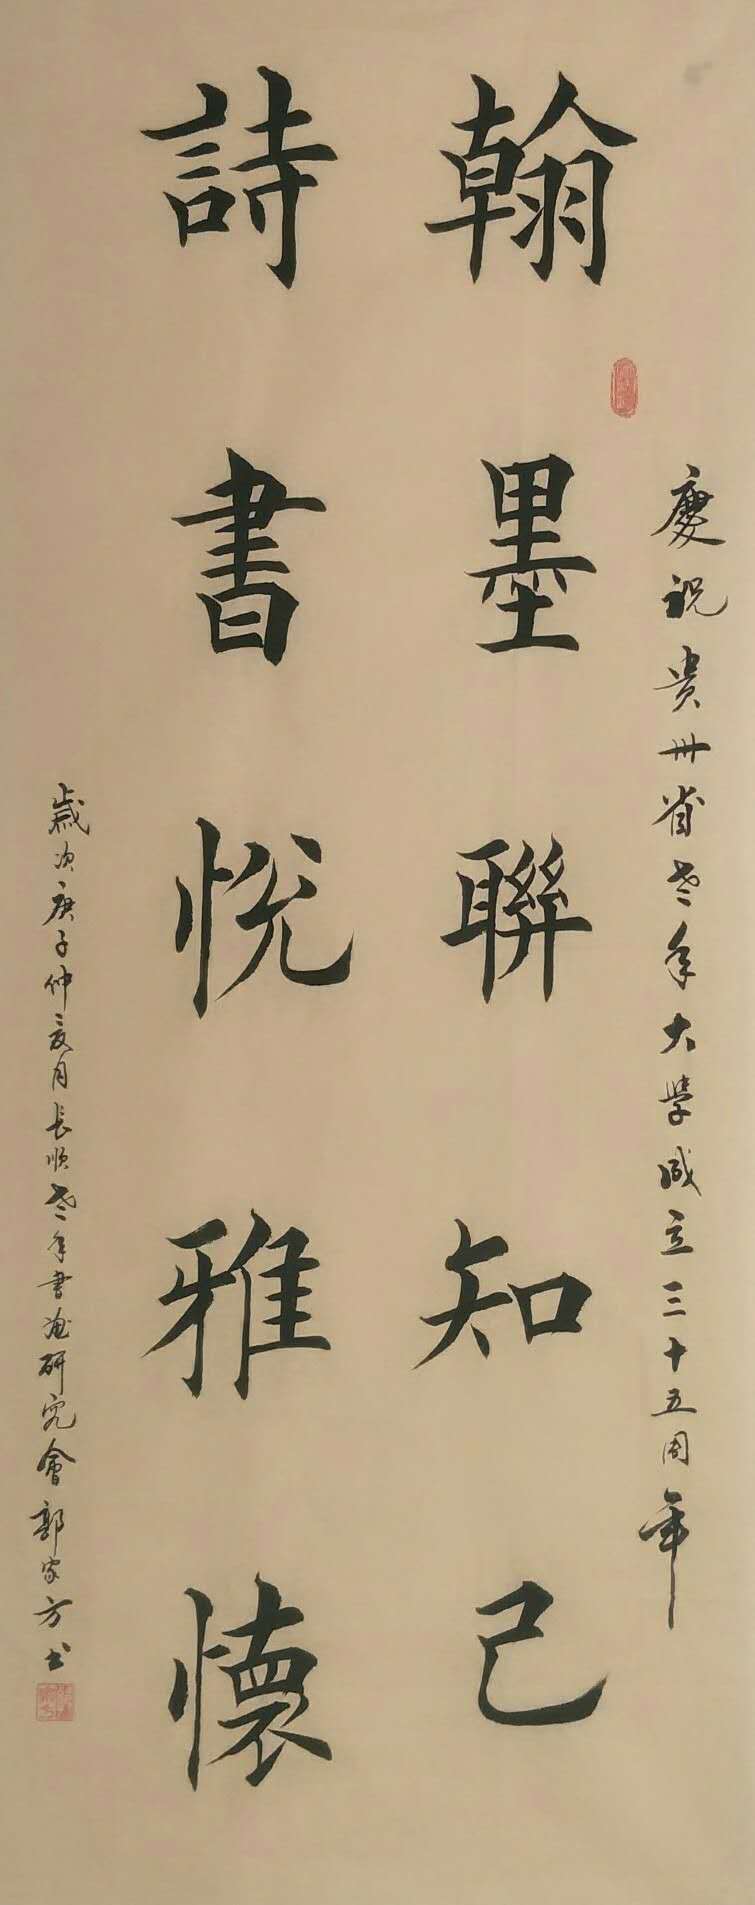 慶祝貴州省老年大學成立三十五周年
翰墨聯知己
詩書悅雅懷
歲次庚子仲夏月長順老年書畫研究會郭家方书